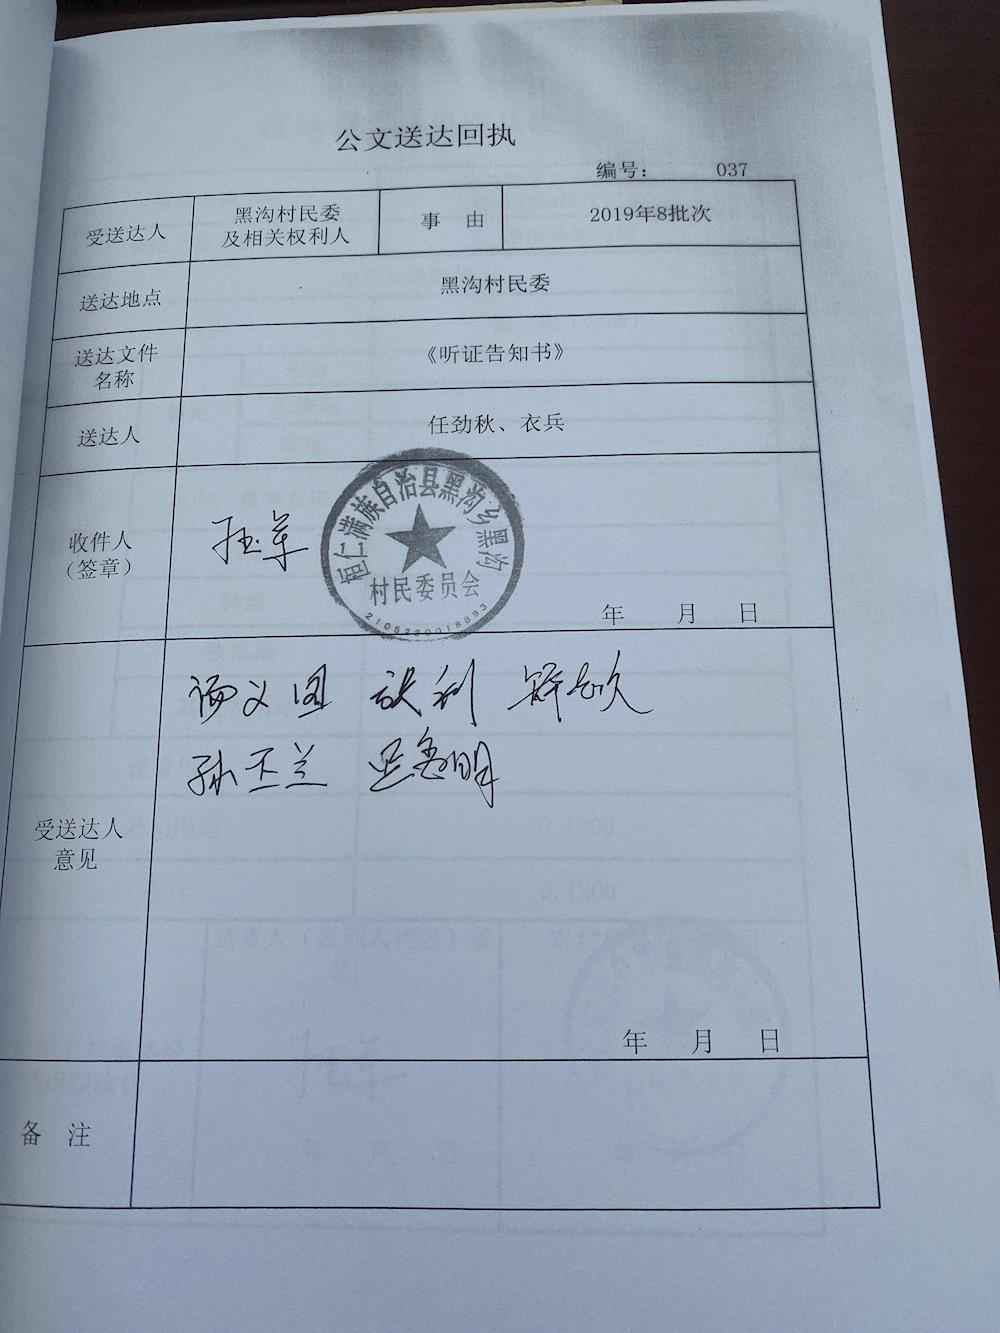 公文送达回执
编号： 037
受送达人
黑沟村民委
及相关权利人
事 由
2019年8批次
送达地点
黑沟村民委
送达文件
名称
《听证告知书》
送达人
任劲秋、衣兵
收件人
（签章）
桓仁满族自治县黑沟乡黑沟
村民委员会
2105220018883
年 月 日
孙玉兰
受送达人
意见
年 月 日
备 注
0.1200
0.1200